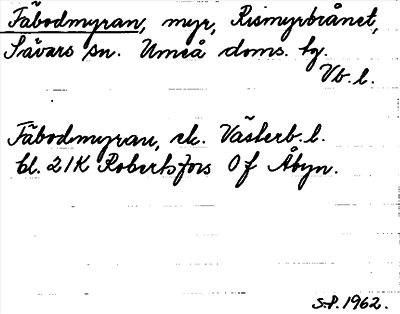 Fäbodmyran, myr, Rismyrbrånet,
Sävars sn. Umeå doms. hg.
Vb. l.
Fäbodmyran, ek. Västerb. l.
bl. 21K Robertsfors 0f Åbyn.
S.P. 1962.